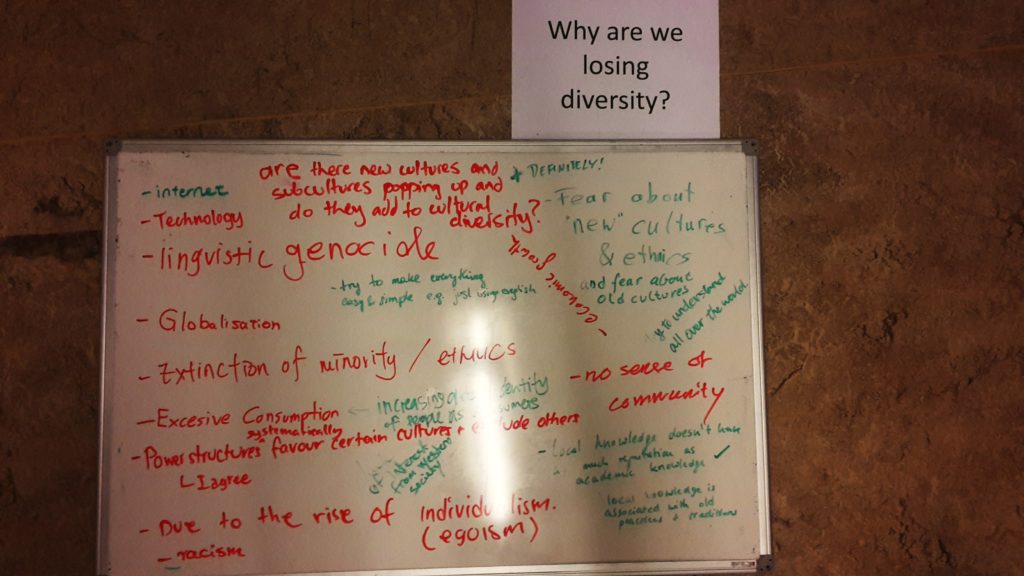 Why are we
losing
diversity?
are there new cultures and
subcultures popping up and
do they add to cultural
diversity?
DEFINITELY!
- internet
- Technology
- linguistic genocide
- try to make everything
easy & simple e.g. just using english
- Globalisation
- Extinction of minority / ethnics
- Excesive Consumption
increasing identity
of people as consumers
- Powerstructures systematically favour certain cultures + exclude others
I agree
interest
from western
society
- Due to the rise of individualism.
(egoism)
- racism
- Fear about
"new" cultures
& ethnics
and fear about
old cultures
- economic growth
to understand
all over the world
- no sense of
community
- Local knowledge doesn't have
much reputation as
academic knowledge
local knowledge is
associated with old
practices + traditions